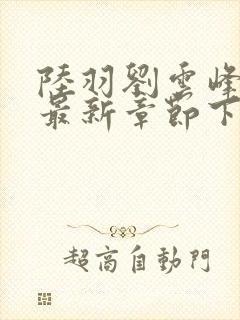 陸羽劉雲峰
最新章節下
超高自動門